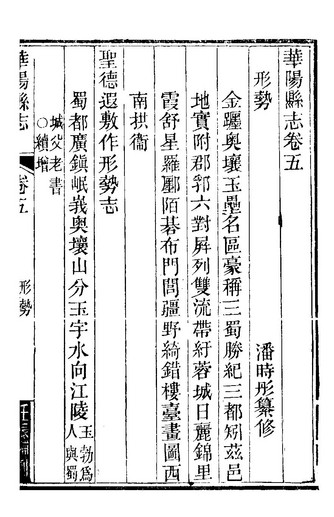 華陽縣志卷五
形勢
潘時彤纂修
金躔奧壤玉壘名區豪稱三蜀勝紀三都矧茲邑
地實附郡郛六對屏列雙流帶紆蓉城日麗錦里
霞舒星羅郦陌碁布門閭疆野綺錯樓臺畫圖西
南拱衞
聖德遐敷作形勢志
蜀都廣鎭岷峩奧壤山分玉宇水向江陵玉勃爲人與蜀
城父老書
○續增
華陽縣志
卷五
形勢